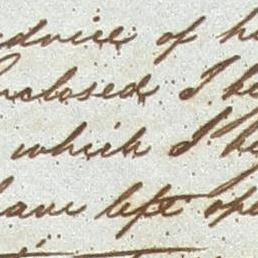 advice of h
Enclosed I be
which I be
have left ope